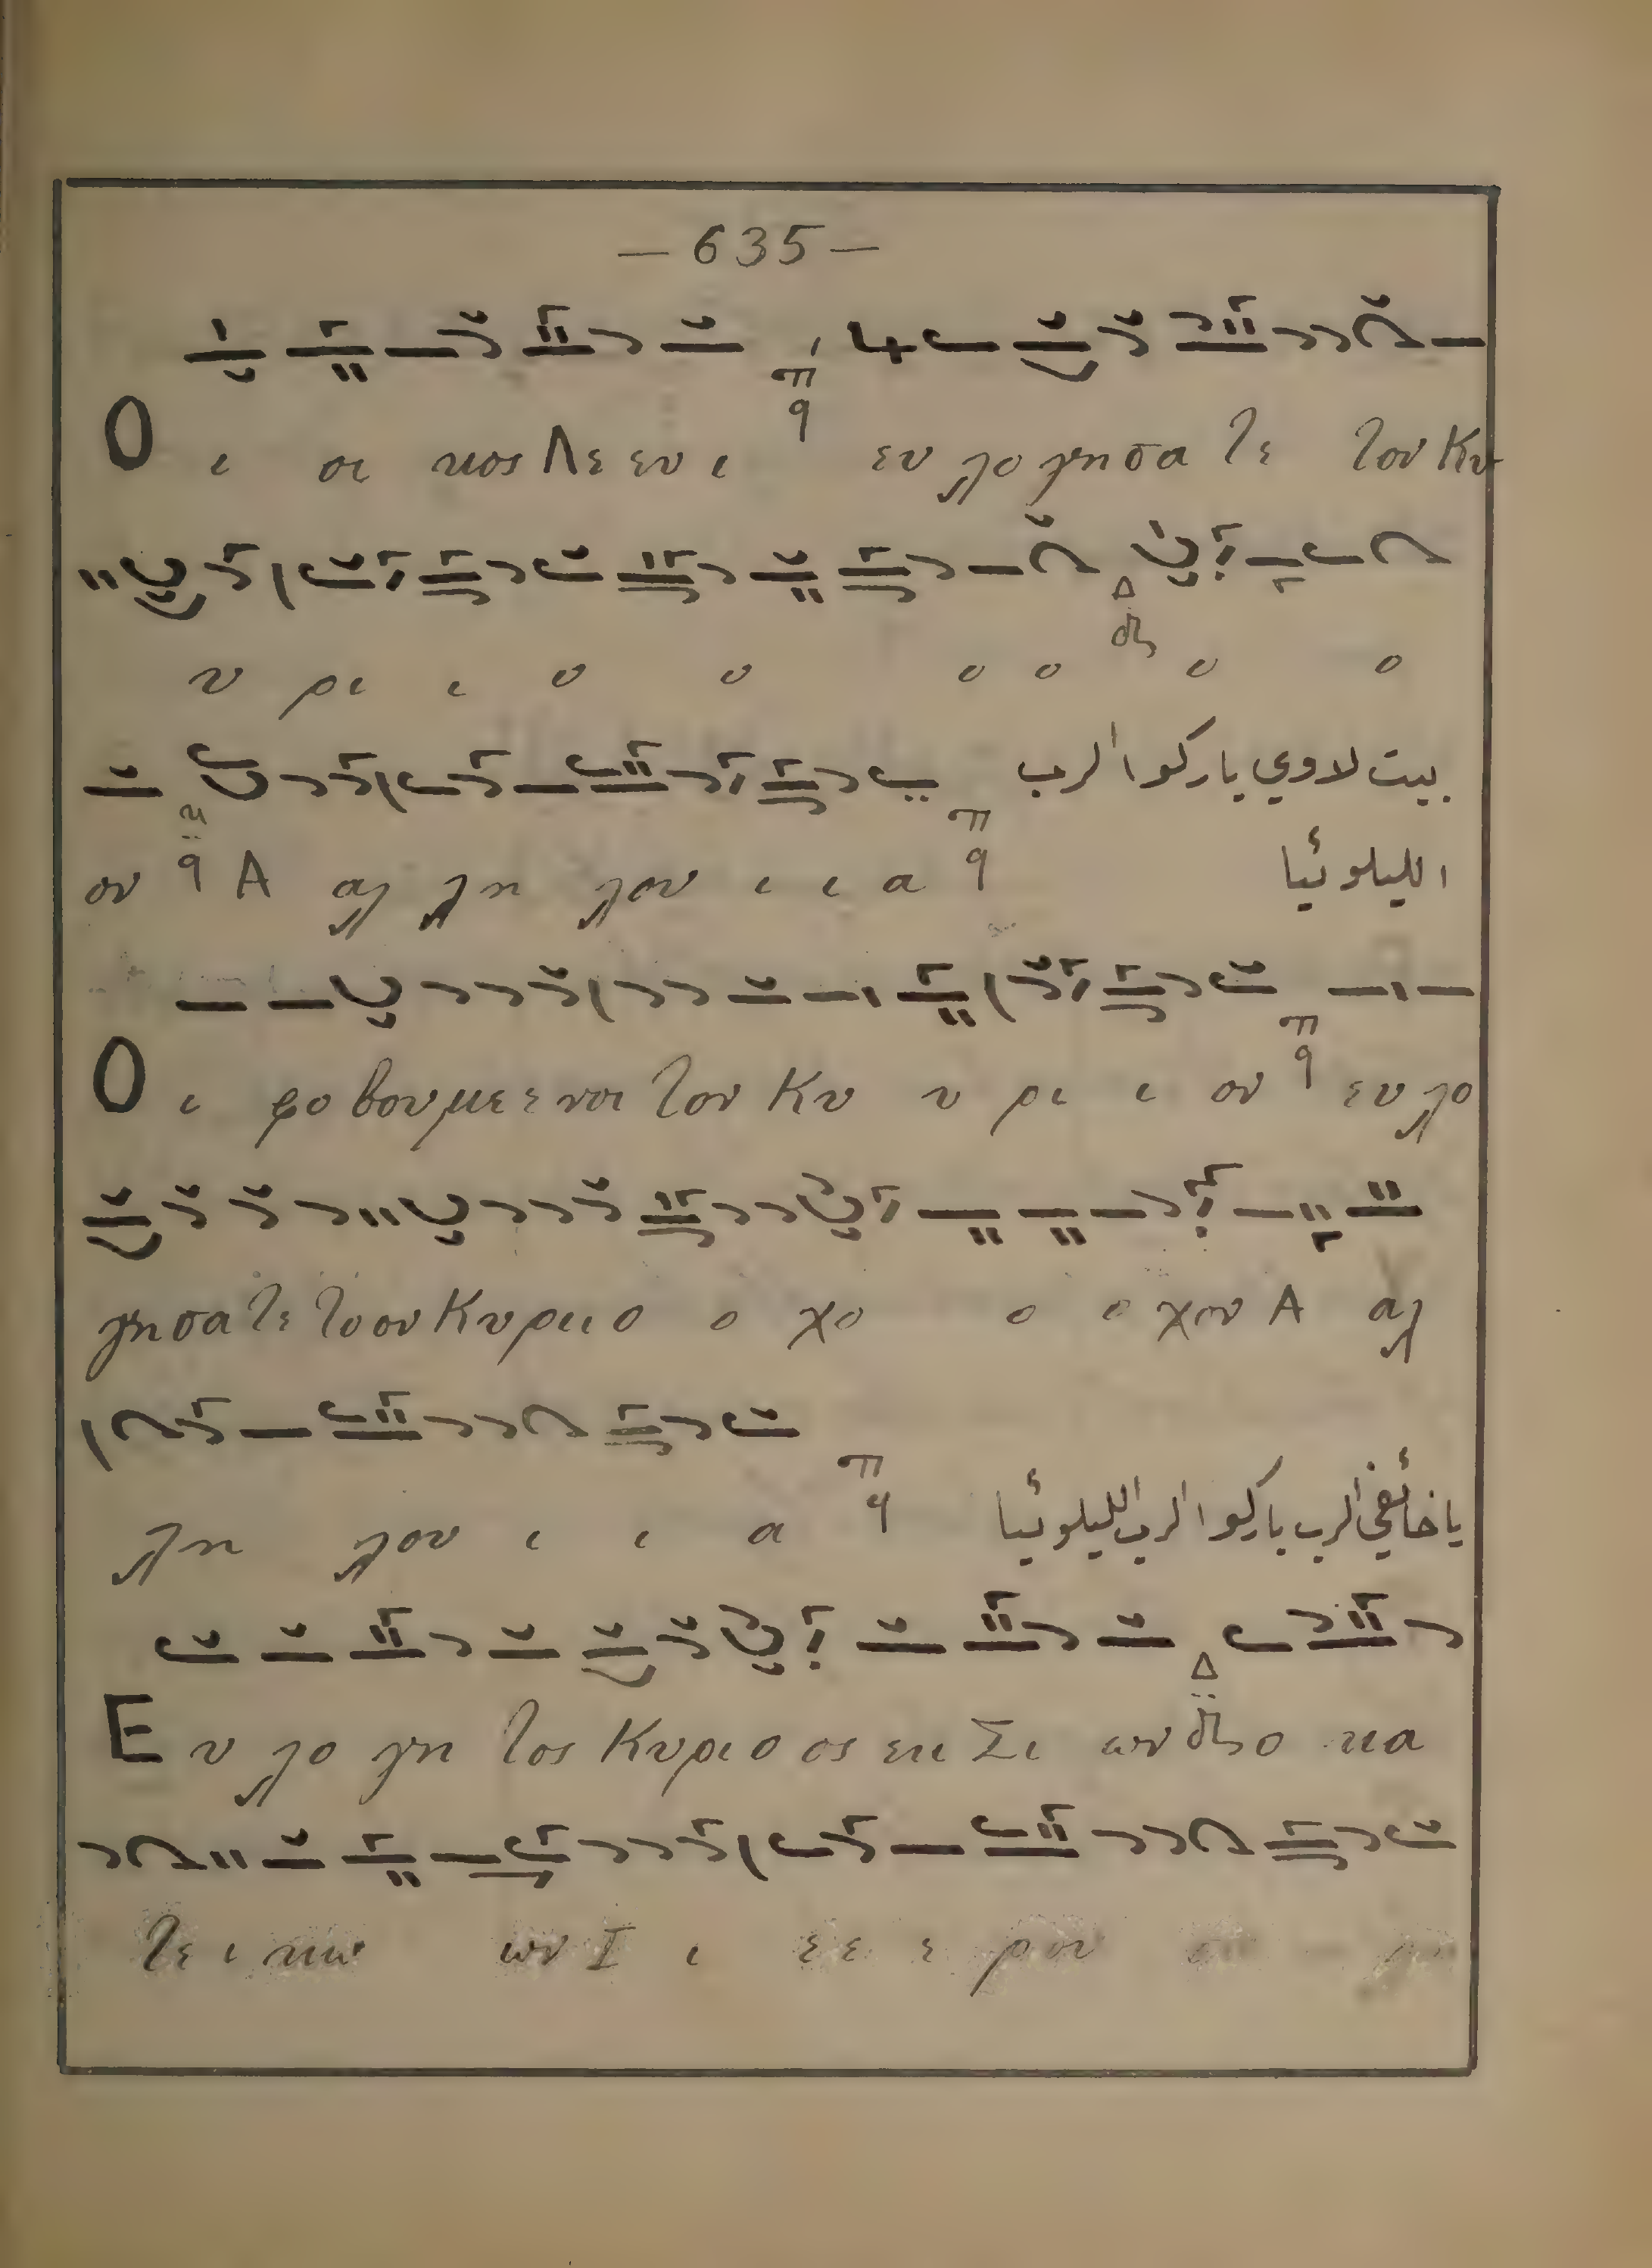 — 635 —
Ο ι οι κος Λε ευ ι ευ λο γη σα τε τον Κυ
υ ρι ι ο ο ο ο ο ο
بيت لاوي باركوا الرب
ον Α αλ λη λου ι ι α
الليلوئيا
Ο ι φο βου με ε νοι τον Κυ υ ρι ι ον ευ λο
γη σα τε το ον Κυ ρι ι ο ο χο ο ο χον Α αλ
λη λου ι ι α
يا خائفي الرب باركوا الرب الليلوئيا
Ε υ λο γη τος Κυ ρι ο ος εκ Σι ων ο κα
τε ι κω ων Ι ι ε ε ε ρου